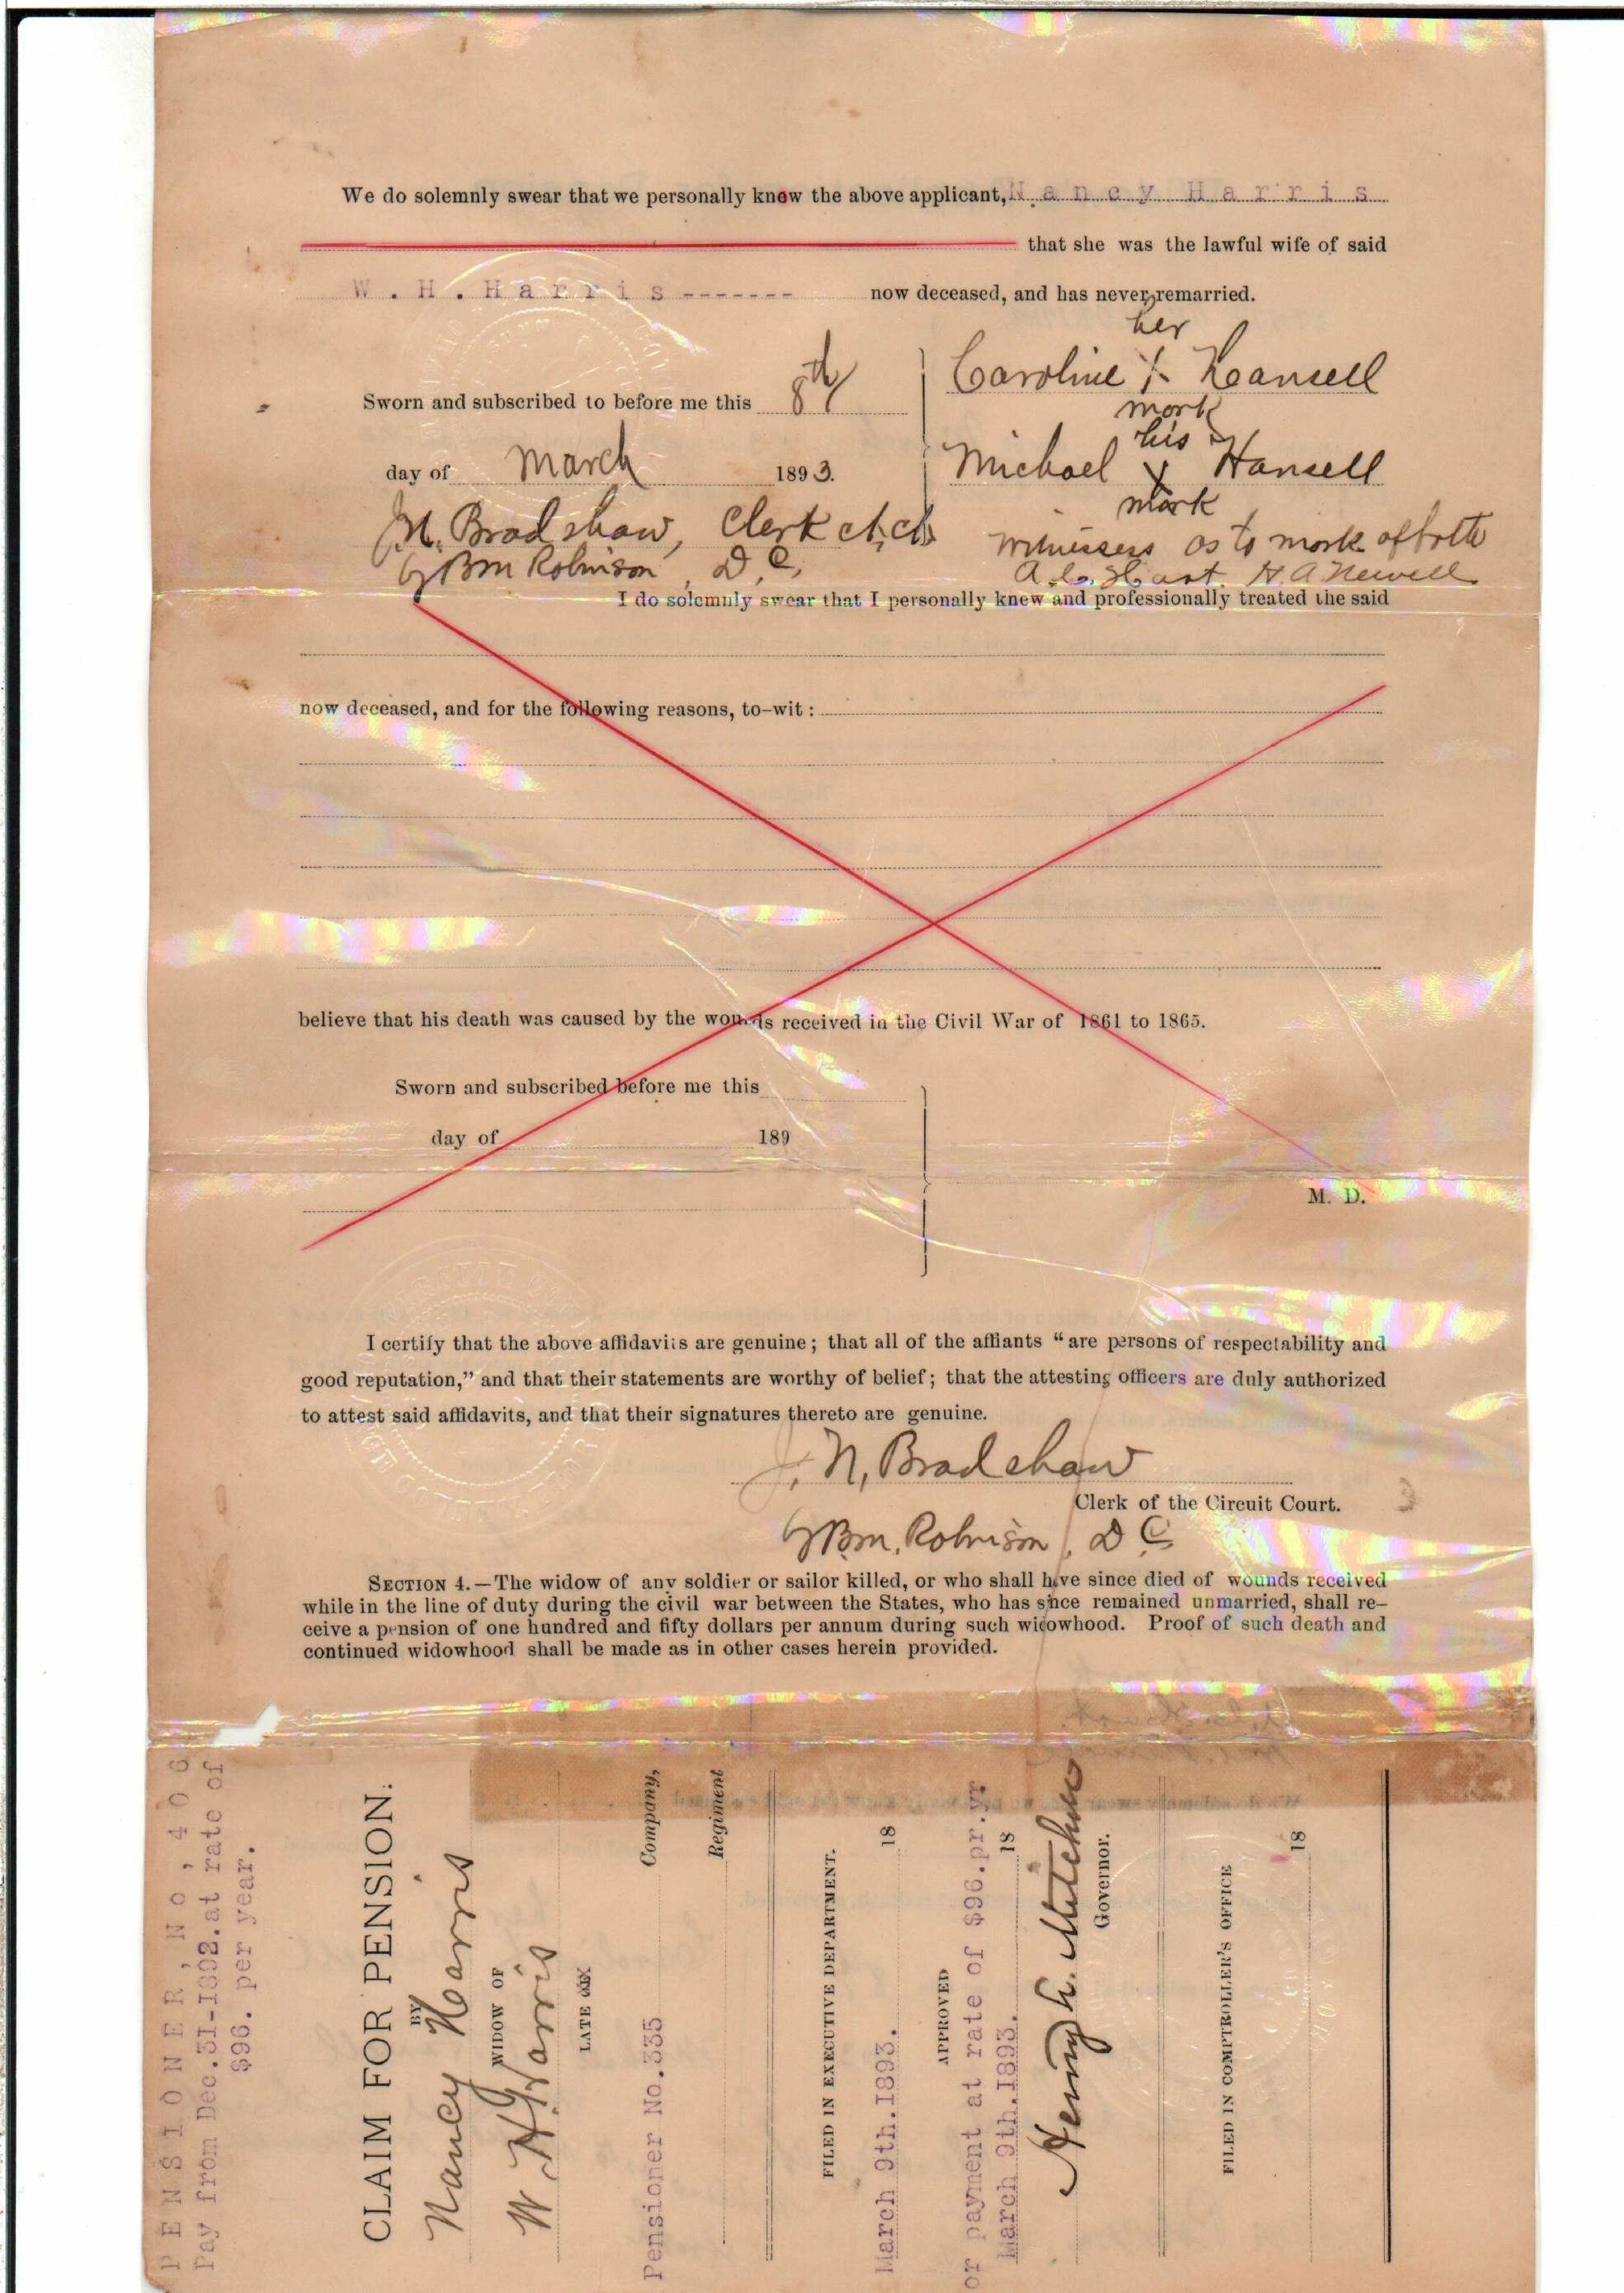 We do solemnly swear that we personally know the above applicant, Nancy Harris
that she was the lawful wife of said
W. H. Harris ------- now deceased, and has never remarried.
her
Caroline X Hansell
Sworn and subscribed to before me this 8th
mark
his
day of March 1893.
Michael X Hansell
mark
J.N. Bradshaw, Clerk ct, ct.
witnesses as to mark of both
by BM Robinson, D.C.
A.C. Hart. H A Newell
I do solemnly swear that I personally knew and professionally treated the said
now deceased, and for the following reasons, to-wit:
believe that his death was caused by the wounds received in the Civil War of 1861 to 1865.
Sworn and subscribed before me this
day of 189
M. D.
I certify that the above affidavits are genuine; that all of the affiants "are persons of respectability and
good reputation," and that their statements are worthy of belief; that the attesting officers are duly authorized
to attest said affidavits, and that their signatures thereto are genuine.
J. N, Bradshaw
Clerk of the Circuit Court.
by BM, Robinson, D C.
SECTION 4.—The widow of any soldier or sailor killed, or who shall have since died of wounds received
while in the line of duty during the civil war between the States, who has since remained unmarried, shall re-
ceive a pension of one hundred and fifty dollars per annum during such widowhood. Proof of such death and
continued widowhood shall be made as in other cases herein provided.
PENSIONER, No, 406
Pay from Dec.31-1892.at rate of
$96. per year.
CLAIM FOR PENSION.
BY
Nancy Harris
WIDOW OF
W H Harris
LATE
Pensioner No.335 Company,
Regiment
FILED IN EXECUTIVE DEPARTMENT.
March 9th.1893. 18
APPROVED
or payment at rate of $96.pr.yr.
March 9th.1893. 18
Henry L. Mitchell
Governor.
FILED IN COMPTROLLER'S OFFICE
18